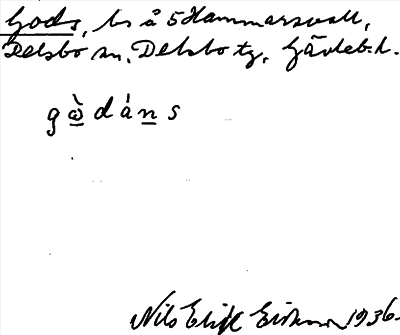 Gods, bs å 5 Hammarsvall,
Delsbo sn, Delsbo tg, Gävleb. l.
gà̱dáṉs
Nils Erik 1936.